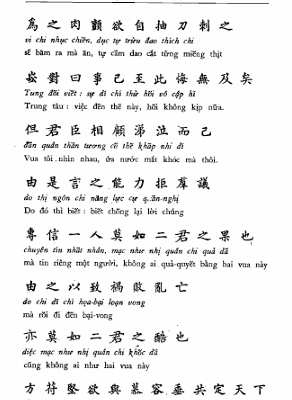 為之肉顫欲自抽刀刺之
vi chi nhục chiên, dục tự trừu đao thích chi
sẽ băm ra mà ăn, tự cầm dao cắt từng miếng thịt
嵩對曰事已至此悔無及矣
Tung đối viết : sự dĩ chí thử hối vô cập hĩ
Trung tâu : việc đến thế này, hối không kịp nữa.
但君臣相顧涕泣而已
đãn quân thần tương cố thế khấp nhi dĩ
Vua tôi nhìn nhau, ứa nước mắt khóc mà thôi.
由是言之能力拒羣議
do thị ngôn chi năng lực cự quần-nghị
Do đó thì biết : biết chống lại lời chúng
專信一人莫如二君之果也
chuyên tín nhất nhân, mạc như nhị quân chi quả dã
mà tin riêng một người, không ai quả-quyết bằng hai vua này
由之以致禍敗亂亡
do chi dĩ chi họa-bại loạn vong
mà rồi đi đến bại-vong
亦莫如二君之酷也
diệc mạc như nhị quân chi khốc dã
cũng không ai như hai vua này
方符堅欲與慕容垂共定天下